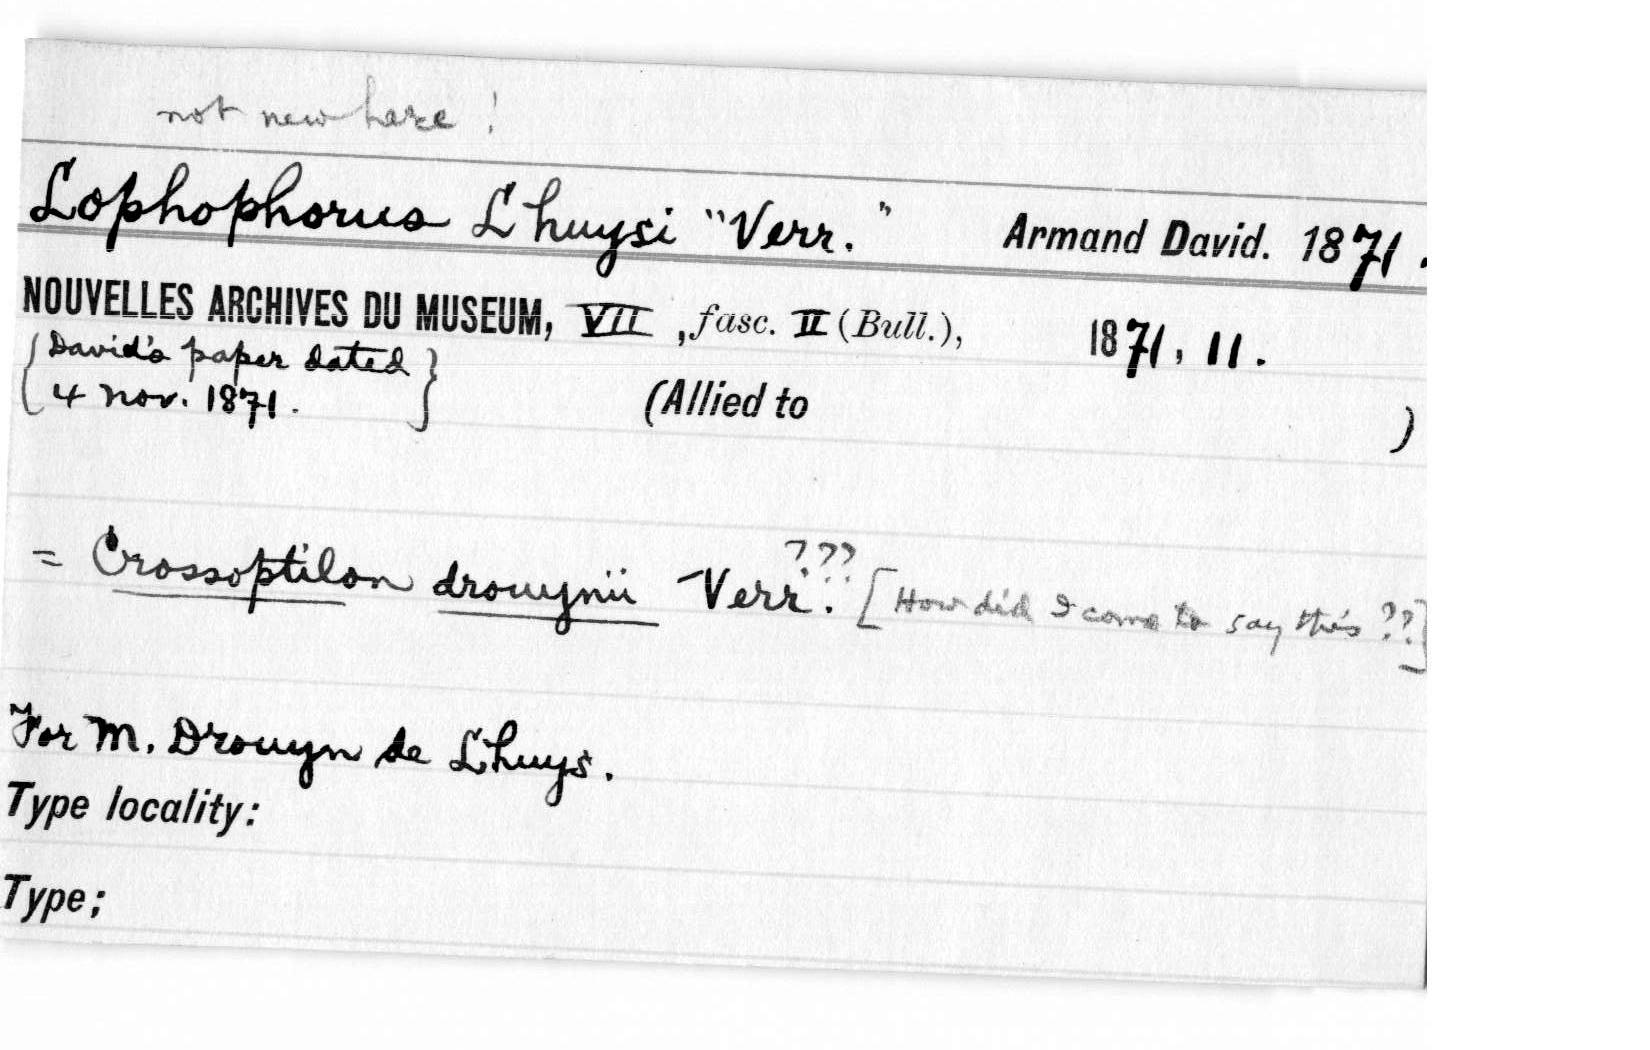 not new here !
Lophophorus L'huysi "Verr." Armand David. 1871.
NOUVELLES ARCHIVES DU MUSEUM, VII, fasc. II (Bull.), 1871, 11.
{David's paper dated
4 Nov. 1871.}
(Allied to )
= Crossoptilon drouynii Verr. ??? [How did I come to say this ??]
For M. Drouyn de Lhuys.
Type locality:
Type;